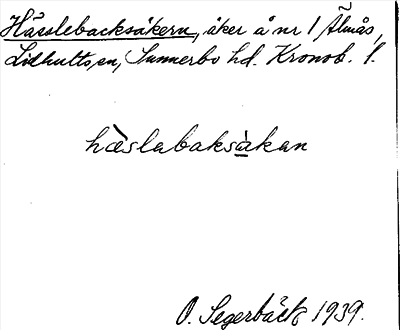 Hässlebacksåkern, åker å nr 1 Älmås,
Lidhults sn, Sunnerbo hd. Kronob. l.
hæ̀slabaksåkan
O. Segerbäck 1939.